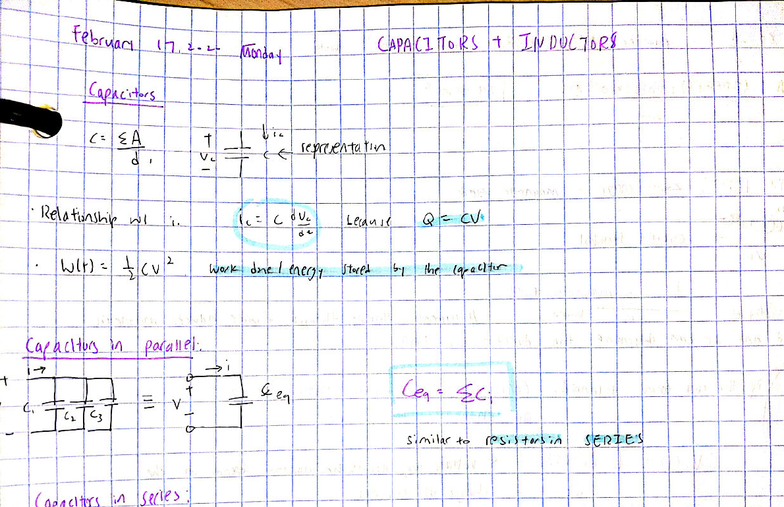 February 17, 2020 Monday CAPACITORS + INDUCTORS
Capacitors
C = εA / d
+ Vc - ↓ic C ← representation
· Relationship w/ i. ic = C dVc/dt because Q = CV
· W(t) = ½ CV² work done / energy stored by the capacitor
Capacitors in parallel:
i→ + - C₁ C₂ C₃ ≡ + V - → i Ceq
Ceq = ΣCi
similar to resistors in SERIES
Capacitors in series: